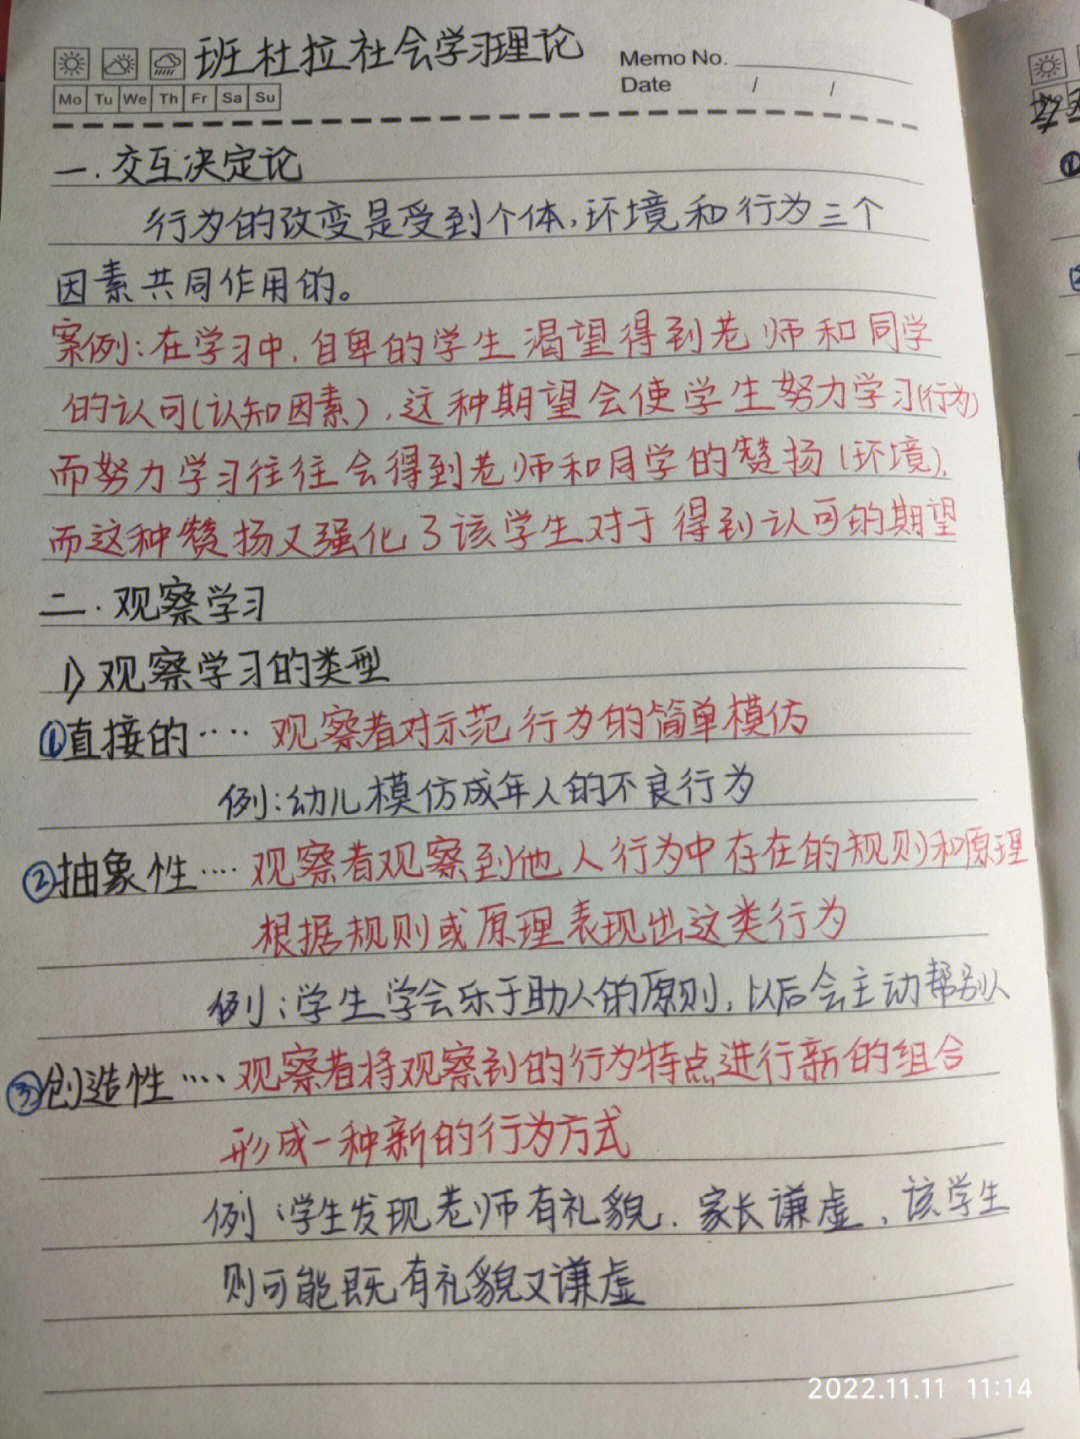 班杜拉社会学习理论
Memo No.
Mo Tu We Th Fr Sa Su
Date / /
一.交互决定论
行为的改变是受到个体,环境和行为三个
因素共同作用的。
案例:在学习中,自卑的学生渴望得到老师和同学
的认可(认知因素),这种期望会使学生努力学习(行为)
而努力学习往往会得到老师和同学的赞扬(环境),
而这种赞扬又强化了该学生对于得到认可的期望
二.观察学习
1)观察学习的类型
①直接的····观察者对示范行为的简单模仿
例:幼儿模仿成年人的不良行为
②抽象性····观察者观察到他人行为中存在的规则和原理
根据规则或原理表现出这类行为
例:学生学会乐于助人的原则,以后会主动帮别人
③创造性····观察者将观察到的行为特点进行新的组合
形成一种新的行为方式
例:学生发现老师有礼貌.家长谦虚,该学生
则可能既有礼貌又谦虚
2022.11.11 11:14